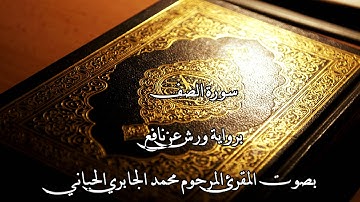 سورة الصف
برواية ورش عن نافع
بصوت المقرئ المرحوم محمد الجابري الحياني